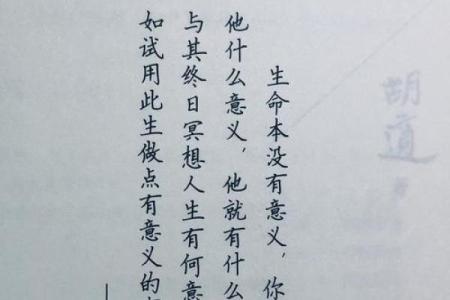 胡
生命本没有意义，你
他什么意义，他就有什么
与其终日冥想人生有何意
如试用此生做点有意义的